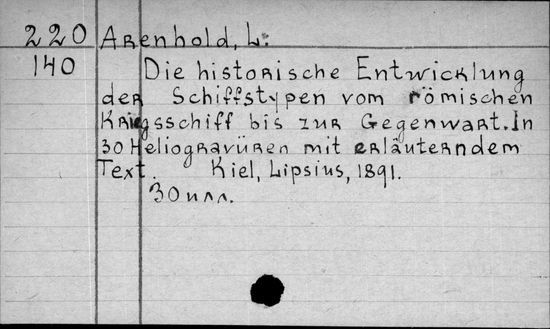 220 Arenhold, L:
140 Die historische Entwicklung
der Schiffstypen vom römischen
Kriegsschiff bis zur Gegenwart. In
30 Heliogravüren mit erläuterndem
Text. Kiel, Lipsius, 1891.
30 илл.